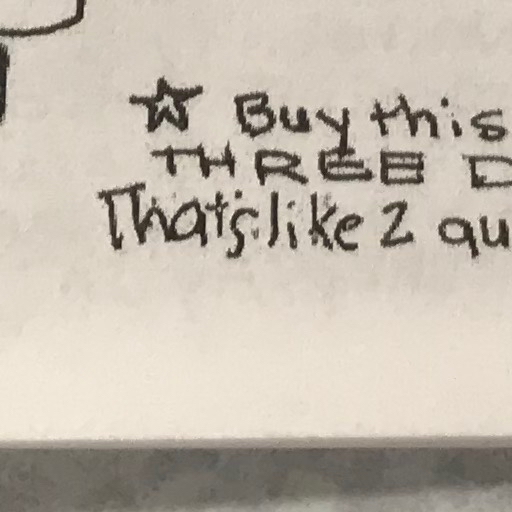 ☆ Buy this
THREE D
That's like 2 qu